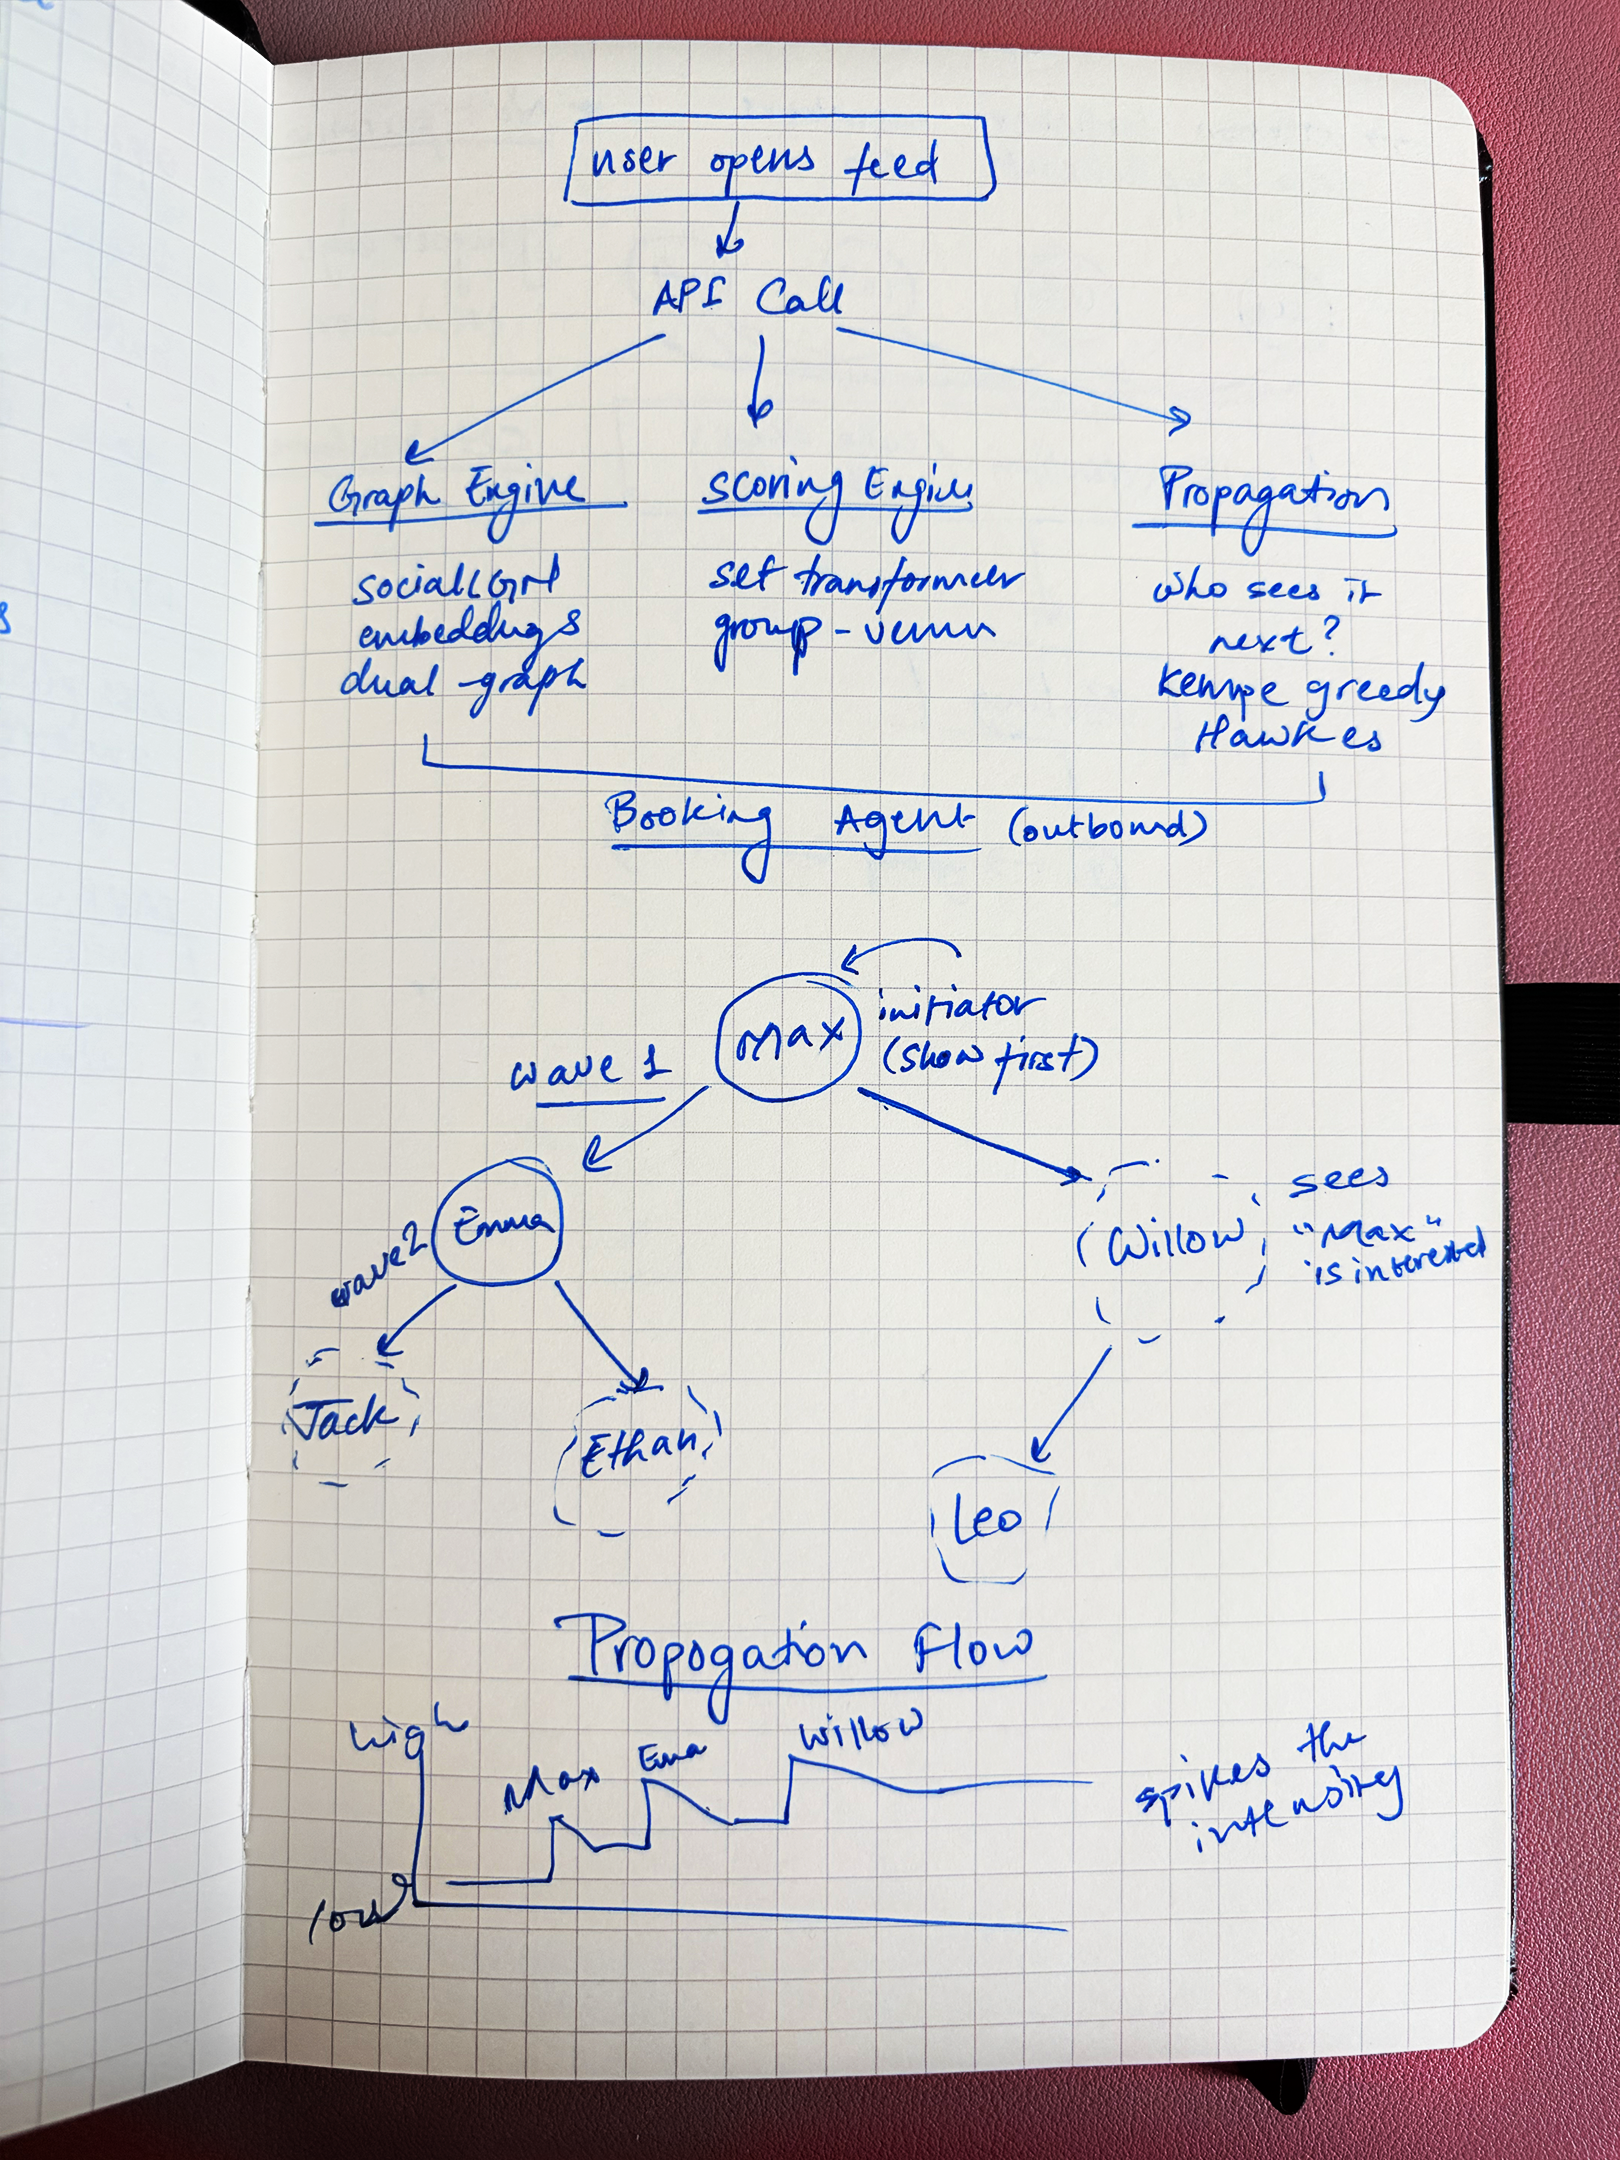 user opens feed
API Call
Graph Engine
socialLGN
embeddings
dual-graph
scoring Engine
set transformer
group-venue
Propagation
who sees it
next?
Kempe greedy
Hawkes
Booking Agent (outbound)
Max
initiator
(show first)
wave 1
Emma
wave 2
Willow
sees
"Max"
is interested
Jack
Ethan
Leo
Propogation Flow
high
Max
Ema
Willow
low
spikes the
intensity